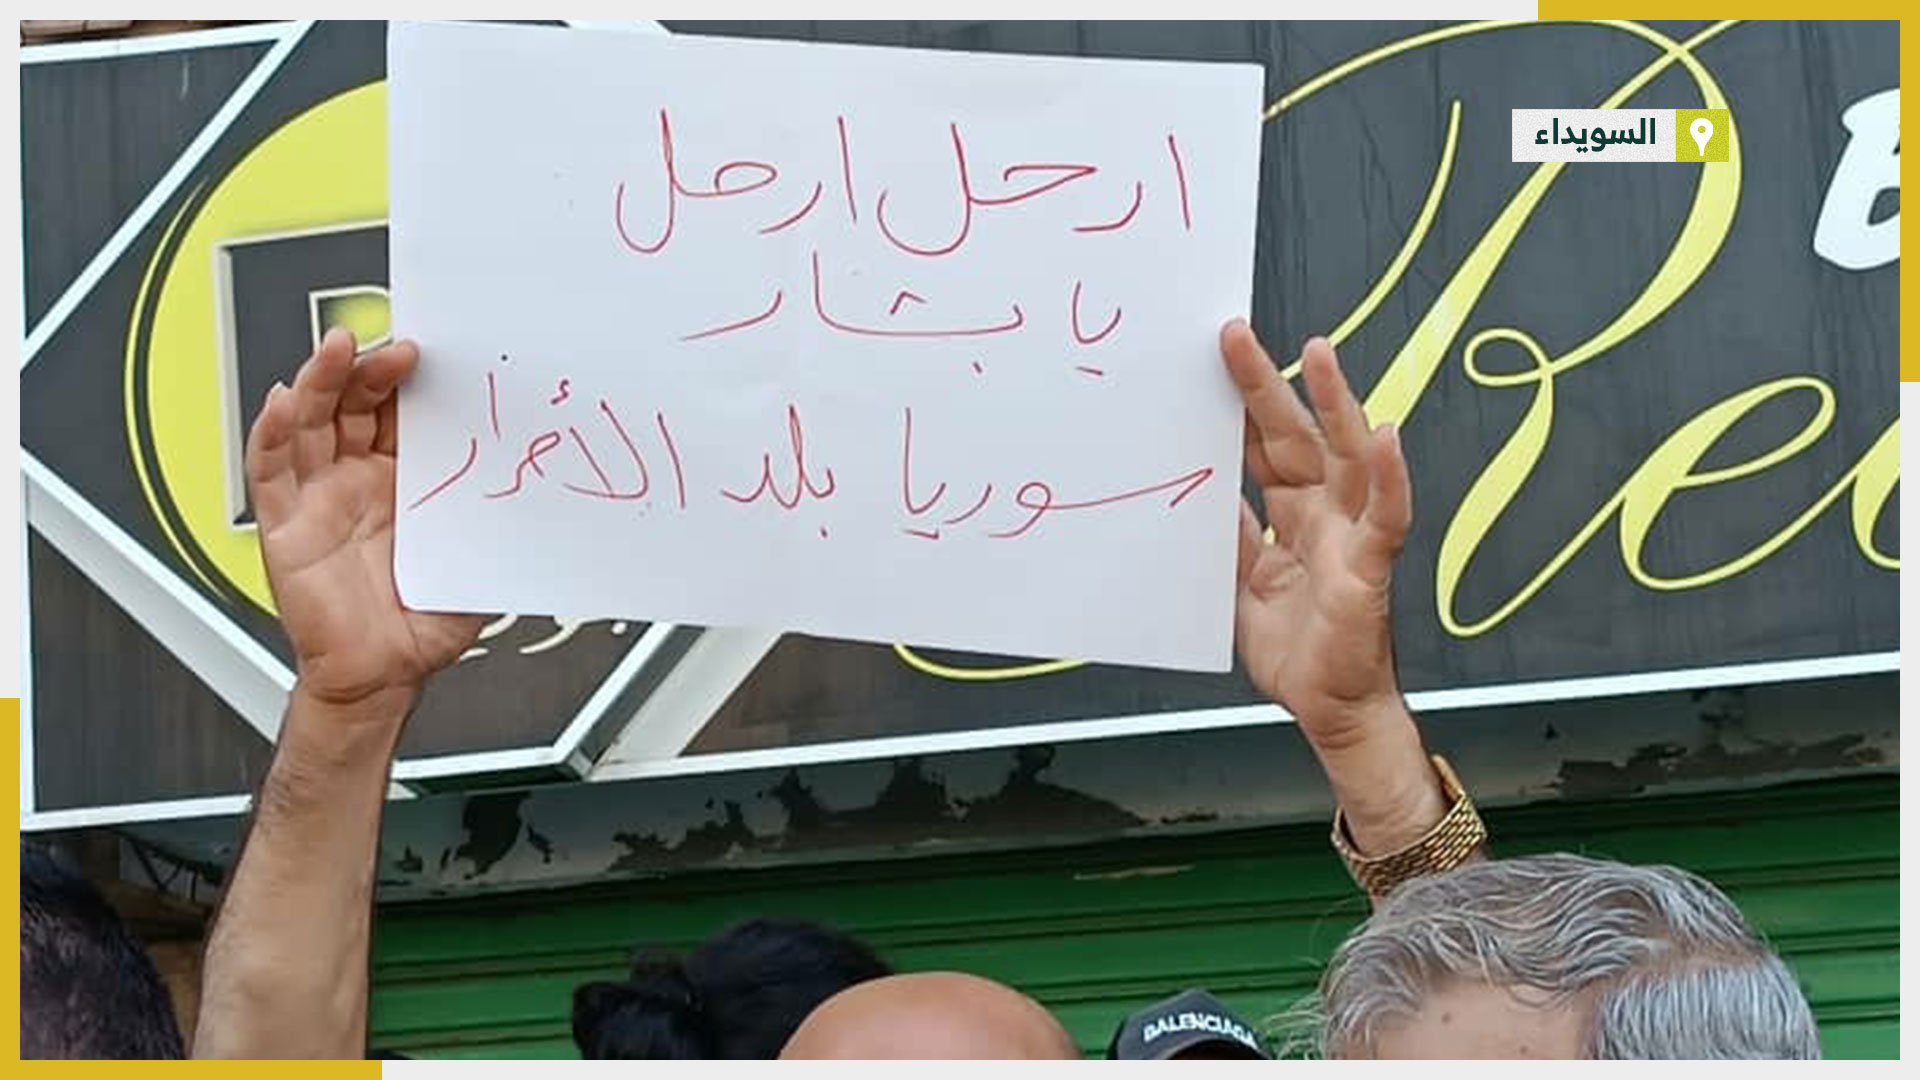 ارحل ارحل
يا بشار
سوريا بلد الأحرار
السويداء
BALENCIAGA